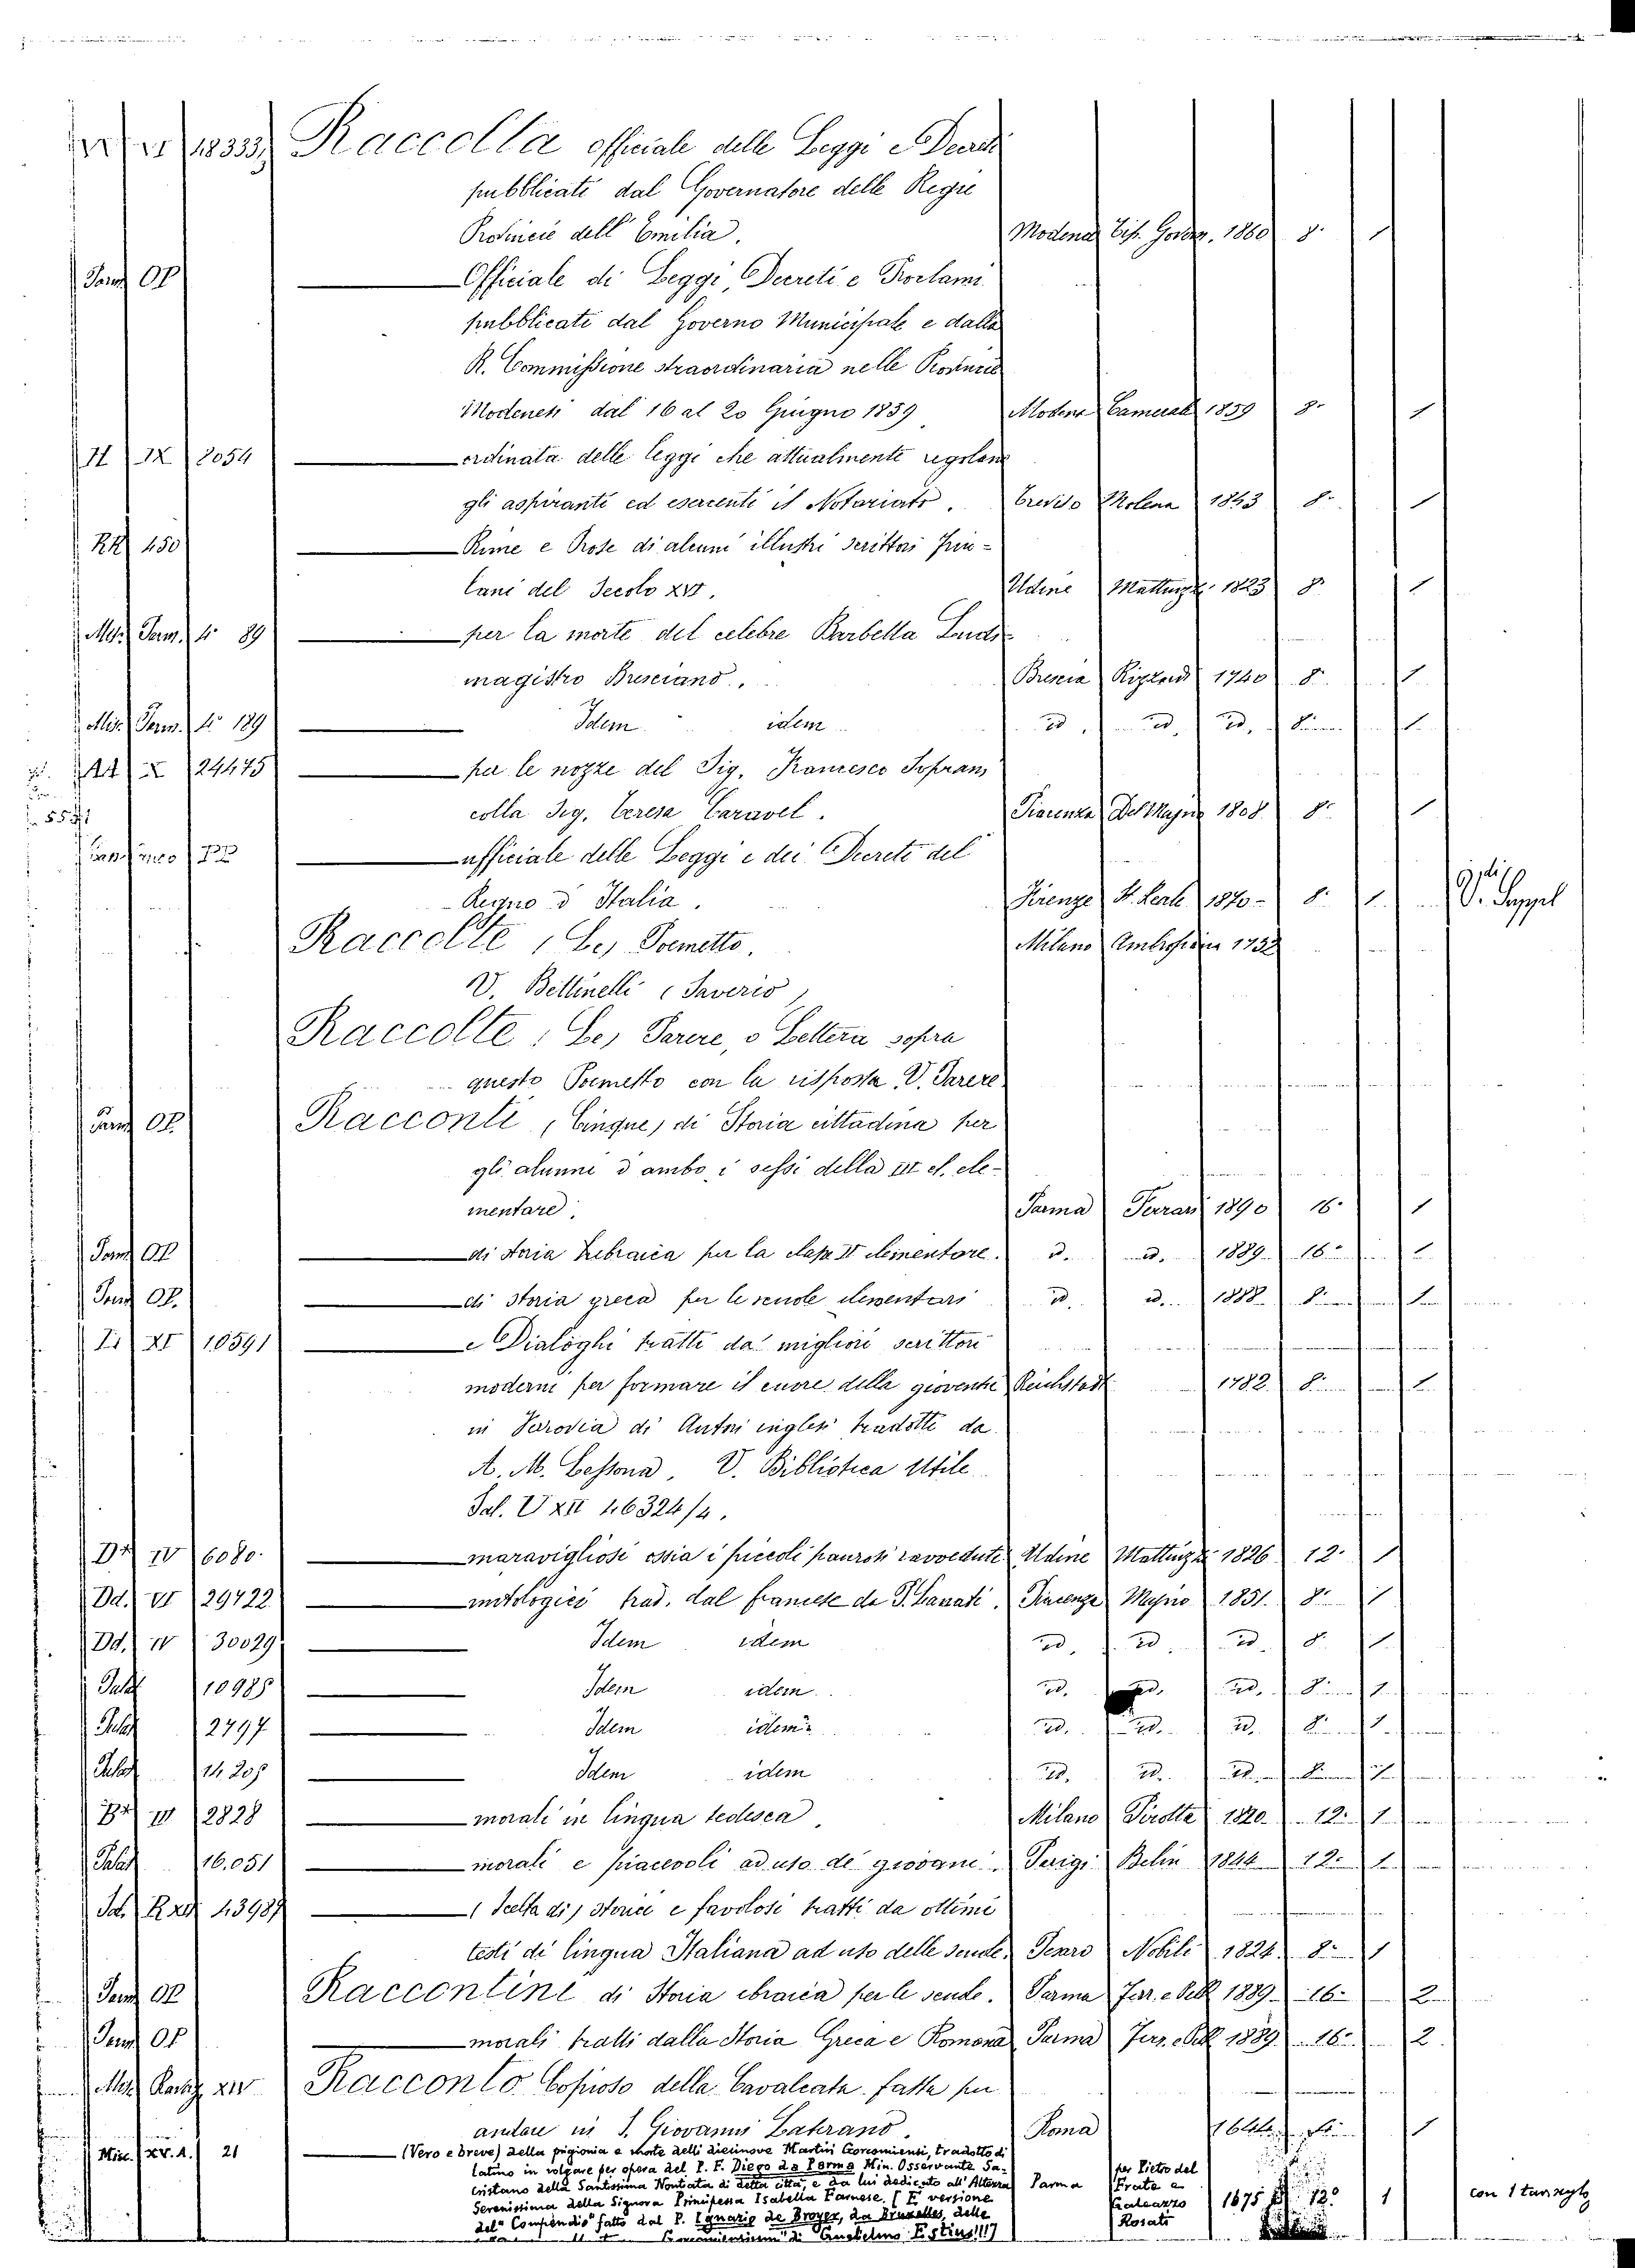 18333 Raccolta officiale delle Leggi e Decreti
pubblicati dal Governatore delle Regie
Provincie dell' Emilia. Modena Tip. Gover. 1860 8º 1
Parm OP Officiale di Leggi, Decreti e Proclami
pubblicati dal Governo Municipale e dalla
R. Commissione straordinaria nelle Provincie
Modenesi dal 16 al 20 Giugno 1859 Modena Camerale 1859 8º 1
II IX 2054 ordinata delle leggi che attualmente regolano
gli aspiranti ed esercenti il Notariato. Treviso Molena 1843 8º 1
RR 450 Rime e Prose di alcuni illustri scrittori Friu-
lani del Secolo XVI. Udine Mattiuzzi 1823 8º 1
Misc. Parm. 4º 89 per la morte del celebre Barbetta Ludi
magistro Bresciano. Brescia 1740 8º 1
Misc. Parm. 4º 189 Idem idem id. id. id. 8º 1
X 24475 per le nozze del Sig. Francesco Soprani
5571 colla Sig. Teresa Caravel. Piacenza Del Majno 1808 8º 1
ufficiale delle Leggi e dei Decreti del
Regno d' Italia. Firenze 1870- 8º 1
Raccolte (Le) Poemetto. Milano 1752
V. Bettinelli (Saverio)
Raccolte (Le) Parere, o Lettera sopra
questo Poemetto con la risposta V. Parere
Parm OP Racconti (Cinque) di Storia cittadina per
gli alunni d'ambo i sessi della III cl. ele-
mentare. Parma Ferrari 1890 16º 1
Parm OP di storia Ebraica per la classe IV elementare. id. id. 1889 16º 1
Parm OP. di Storia greca per le scuole elementari id. id. 1888 8º 1
XI 10591 e Dialoghi tratti da' migliori scrittori
moderni per formare il cuore della gioventù Reichstadt 1782 8º 1
in Parodia di Autori inglesi tradotti da
A. M. Lessona. V. Biblioteca Utile
Sal. V XII 46324/4.
IV 6080. maravigliosi ossia i piccoli paurosi ravveduti Udine Mattiuzzi 1826 12º 1
Dd. VI 29722 mitologici trad. dal francese da P. Zanati. Piacenza Majno 1851. 8º 1
Dd. IV 30029 Idem idem id. id. id. 8º 1
Palat 10985 Idem idem id. id. id. 8º 1
Palat 2797 Idem idem id. id. id. 8º 1
Palat 14,205 Idem idem id. id. id. 8º 1
III 2828 morali in lingua tedesca. Milano Pirotta 1820. 12º 1
Palat 16,051 morali e piacevoli ad uso de' giovani. Parigi Belin 1844 12º 1
Sal. 43987 (Scelta di) storici e favolosi tratti da ottimi
testi di lingua Italiana ad uso delle scuole. Pesaro Nobili 1824 8º 1
Parm OP Raccontini di Storia ebraica per le scuole. Parma Ferr. e Pell. 1889. 16º 2
Parm OP morali tratti dalla Storia Greca e Romana Parma Ferr. e Pell. 1889. 16º 2
Misc. XIV Racconto Copioso della Cavalcata fatta per
andare in S. Giovanni Laterano. Roma 1
Misc. XV. A. 21 (Vero e breve) della prigionia e morte delli diecinove Martiri Gorcomiensi, tradotto di
latino in volgare per opera del P. F. Diego da Parma Min. Osservante Sa-
cristano della Santissima Nontiata di detta città, e da lui dedicato all' Altezza Parma per Pietro del Frate e
Serenissima della Signora Principessa Isabella Farnese. [È versione Galeazzo Rosati 1675 12º 1 con 1 tav. xylg
del "Compendio" fatto dal P. Ignazio de Broyer, da Bruxelles, delle